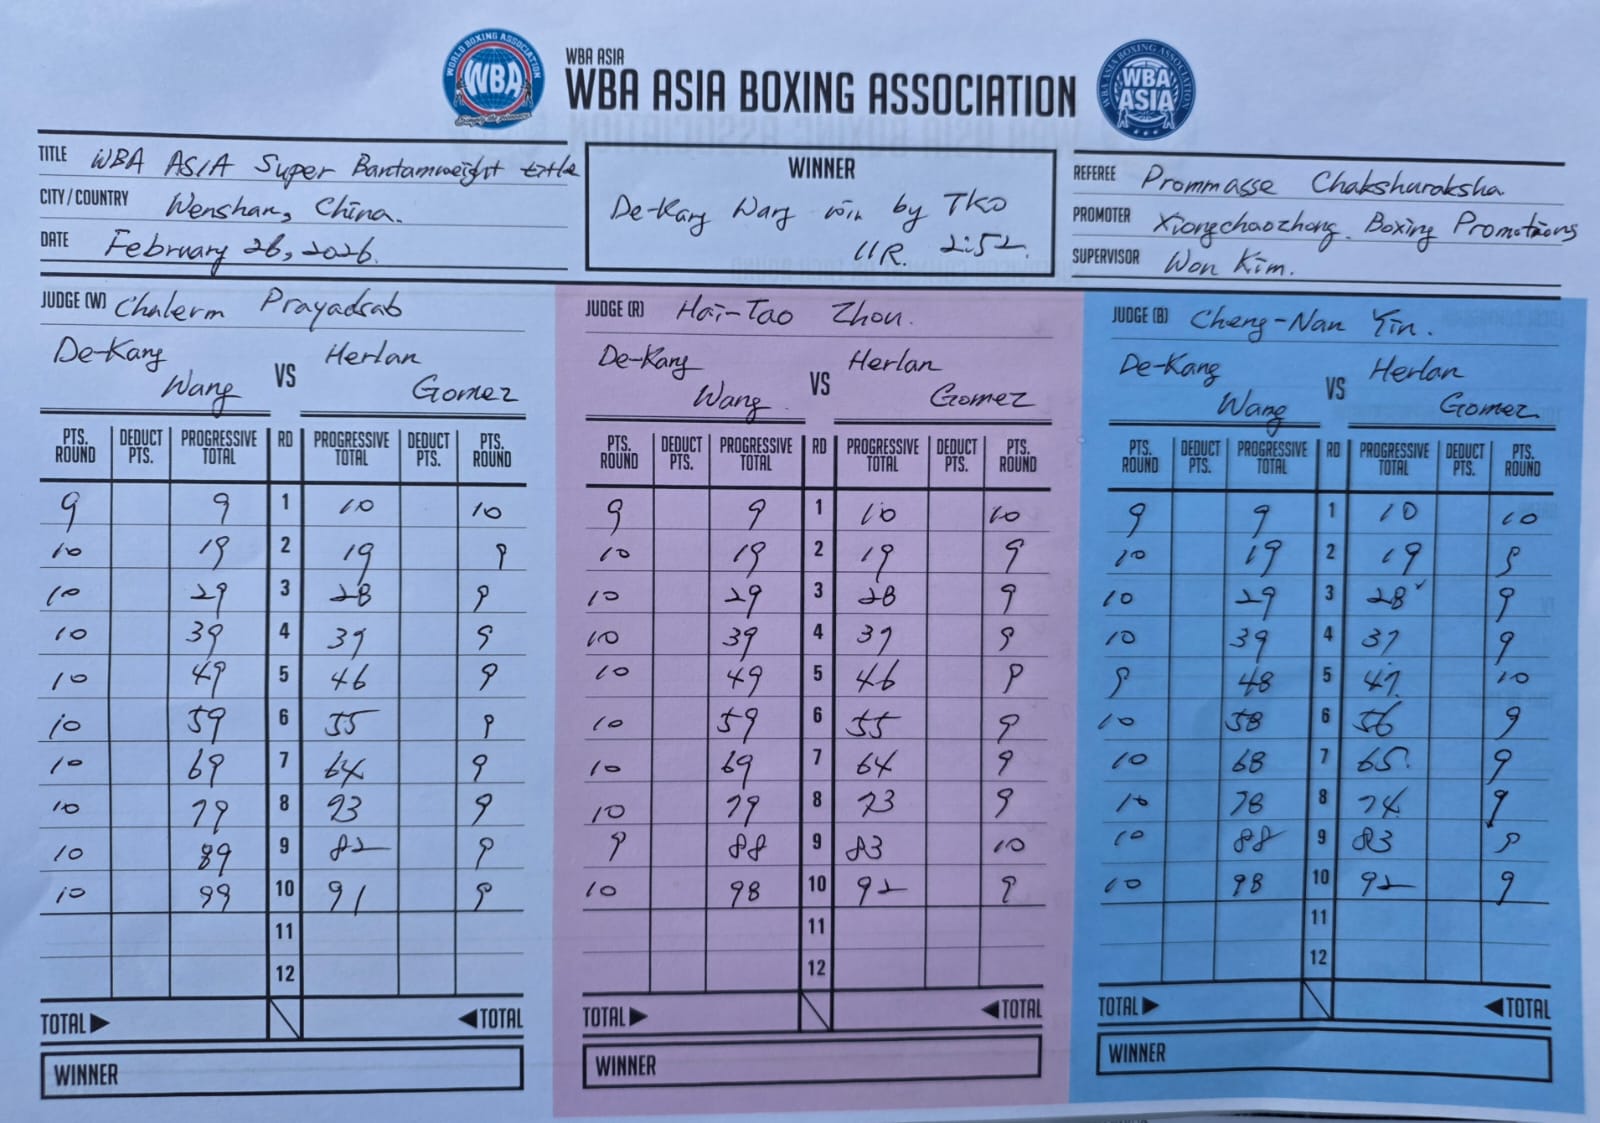 WORLD BOXING ASSOCIATION
WBA
Simply the pioneers
WBA ASIA
WBA ASIA BOXING ASSOCIATION
WBA ASIA BOXING ASSOCIATION
WBA
ASIA
TITLE WBA ASIA Super Bantamweight title
CITY / COUNTRY Wenshan, China.
DATE February 26, 2026.
WINNER
De-Kang Wang win by TKO
11R. 2:52.
REFEREE Prommasse Chakshuraksha
PROMOTER Xiongchaozhong Boxing Promotions
SUPERVISOR Won Kim.
JUDGE (W) Chalerm Prayadsab
De-Kang Wang VS Herlan Gomez
PTS. ROUND DEDUCT PTS. PROGRESSIVE TOTAL RD PROGRESSIVE TOTAL DEDUCT PTS. PTS. ROUND
9 9 1 10 10
10 19 2 19 9
10 29 3 28 9
10 39 4 37 9
10 49 5 46 9
10 59 6 55 9
10 69 7 64 9
10 79 8 73 9
10 89 9 82 9
10 99 10 91 9
11
12
TOTAL TOTAL
WINNER
JUDGE (R) Hai-Tao Zhou.
De-Kang Wang VS Herlan Gomez
PTS. ROUND DEDUCT PTS. PROGRESSIVE TOTAL RD PROGRESSIVE TOTAL DEDUCT PTS. PTS. ROUND
9 9 1 10 10
10 19 2 19 9
10 29 3 28 9
10 39 4 37 9
10 49 5 46 9
10 59 6 55 9
10 69 7 64 9
10 79 8 73 9
9 88 9 83 10
10 98 10 92 9
11
12
TOTAL TOTAL
WINNER
JUDGE (B) Cheng-Nan Yin.
De-Kang Wang VS Herlan Gomez
PTS. ROUND DEDUCT PTS. PROGRESSIVE TOTAL RD PROGRESSIVE TOTAL DEDUCT PTS. PTS. ROUND
9 9 1 10 10
10 19 2 19 9
10 29 3 28 9
10 39 4 37 9
9 48 5 47 10
10 58 6 56 9
10 68 7 65 9
10 78 8 74 9
10 88 9 83 9
10 98 10 92 9
11
12
TOTAL TOTAL
WINNER